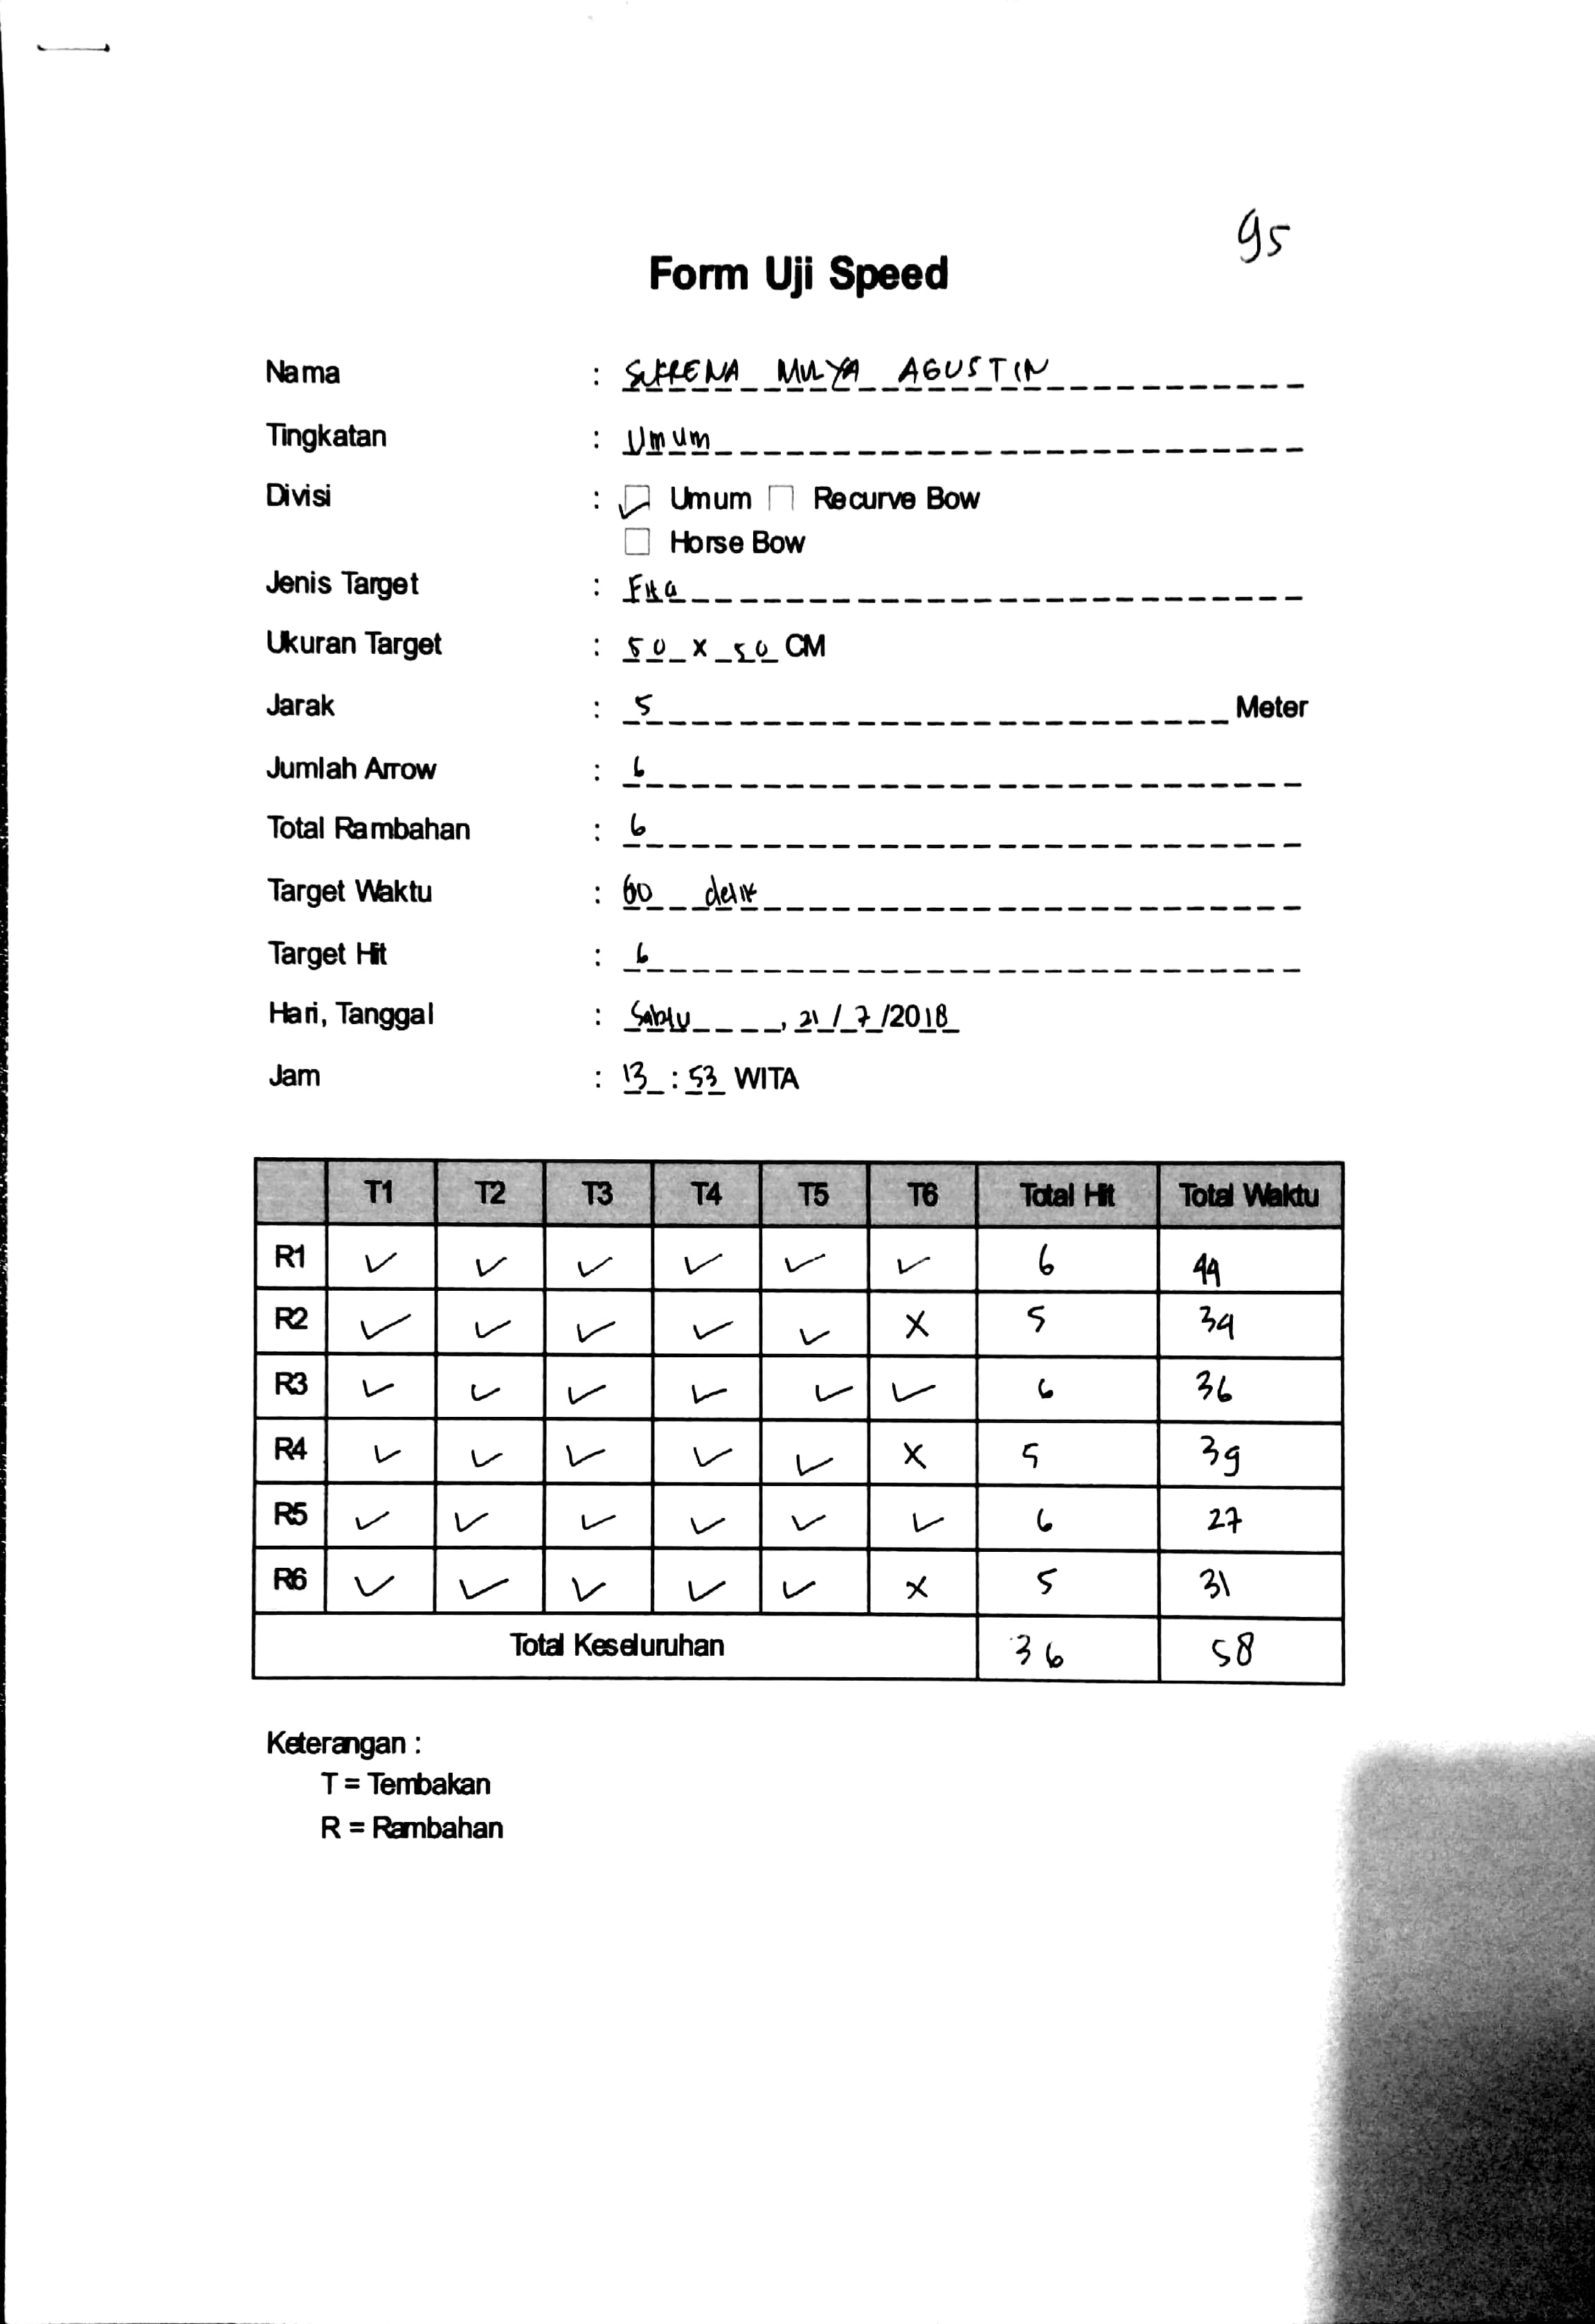 95
Form Uji Speed
Nama : SUKRENA MULYA AGUSTIN
Tingkatan : Umum
Divisi : Umum Recurve Bow
Horse Bow
Jenis Target : Fita
Ukuran Target : 50 x 50 CM
Jarak : 5 Meter
Jumlah Arrow : 6
Total Rambahan : 6
Target Waktu : 60 detik
Target Hit : 6
Hari, Tanggal : Sabtu, 21/7/2018
Jam : 13:53 WITA
T1 T2 T3 T4 T5 T6 Total Hit Total Waktu
R1 ✓ ✓ ✓ ✓ ✓ ✓ 6 44
R2 ✓ ✓ ✓ ✓ ✓ X 5 34
R3 ✓ ✓ ✓ ✓ ✓ ✓ 6 36
R4 ✓ ✓ ✓ ✓ ✓ X 5 39
R5 ✓ ✓ ✓ ✓ ✓ ✓ 6 27
R6 ✓ ✓ ✓ ✓ ✓ X 5 31
Total Keseluruhan 36 58
Keterangan :
T = Tembakan
R = Rambahan